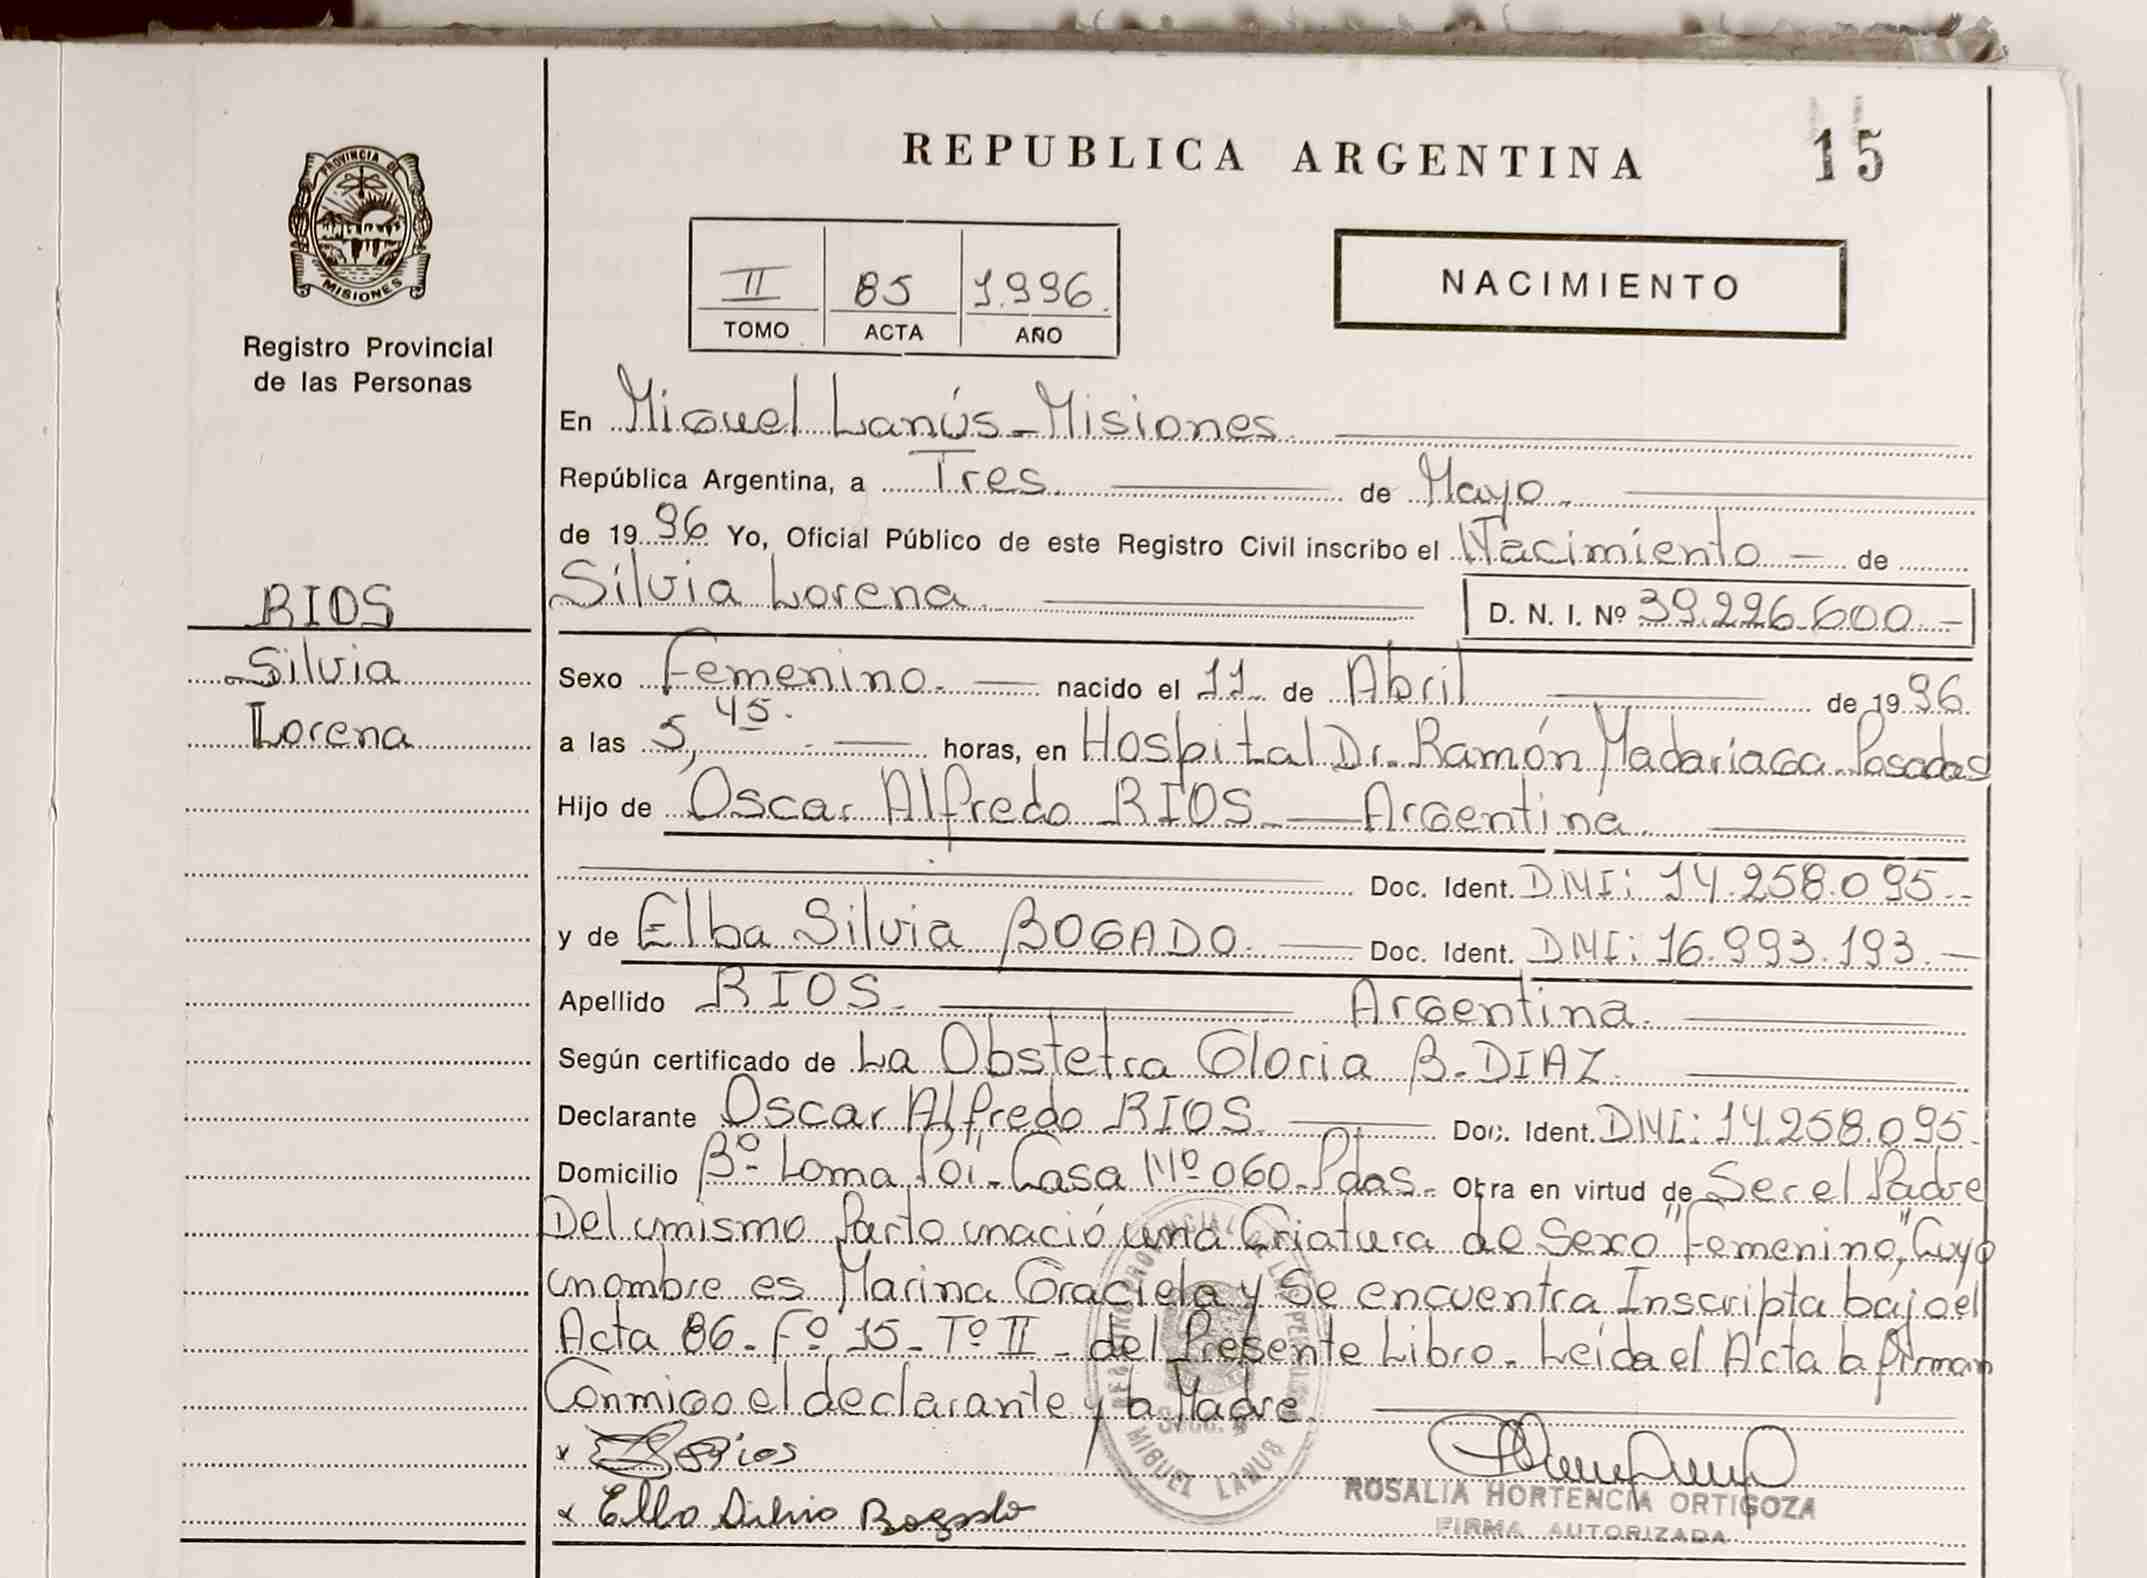 REPUBLICA ARGENTINA
15
PROVINCIA DE
MISIONES
Registro Provincial
de las Personas
II 85 1.996.
TOMO ACTA AÑO
NACIMIENTO
En Miguel Lanús - Misiones
República Argentina, a Tres de Mayo
de 1996 Yo, Oficial Público de este Registro Civil inscribo el Nacimiento — de
Silvia Lorena D. N. I. Nº 39.226.600.-
RIOS
Silvia
Lorena
Sexo Femenino. nacido el 11 de Abril de 1996
a las 5,45. horas, en Hospital Dr. Ramón Madariaga - Posadas
Hijo de Oscar Alfredo RIOS — Argentina
Doc. Ident. DNI: 14.258.095.-
y de Elba Silvia BOGADO. Doc. Ident. DNI: 16.993.193.-
Apellido RIOS. Argentina
Según certificado de La Obstetra Gloria B. DIAZ
Declarante Oscar Alfredo RIOS Doc. Ident. DNI: 14.258.095.
Domicilio Bº Loma Poi - Casa Nº 060 - Pdas. Obra en virtud de Ser el Padre
Del mismo Parto nació una Criatura de Sexo "Femenino", Cuyo
nombre es Marina Graciela y Se encuentra Inscripta bajo el
Acta 86 - Fº 15 - Tº II - del Presente Libro. Leída el Acta la firman
Conmigo el declarante y la Madre
x Rios
x Elba Silvia Bogado
MIGUEL LANUS
ROSALIA HORTENCIA ORTIGOZA
FIRMA AUTORIZADA